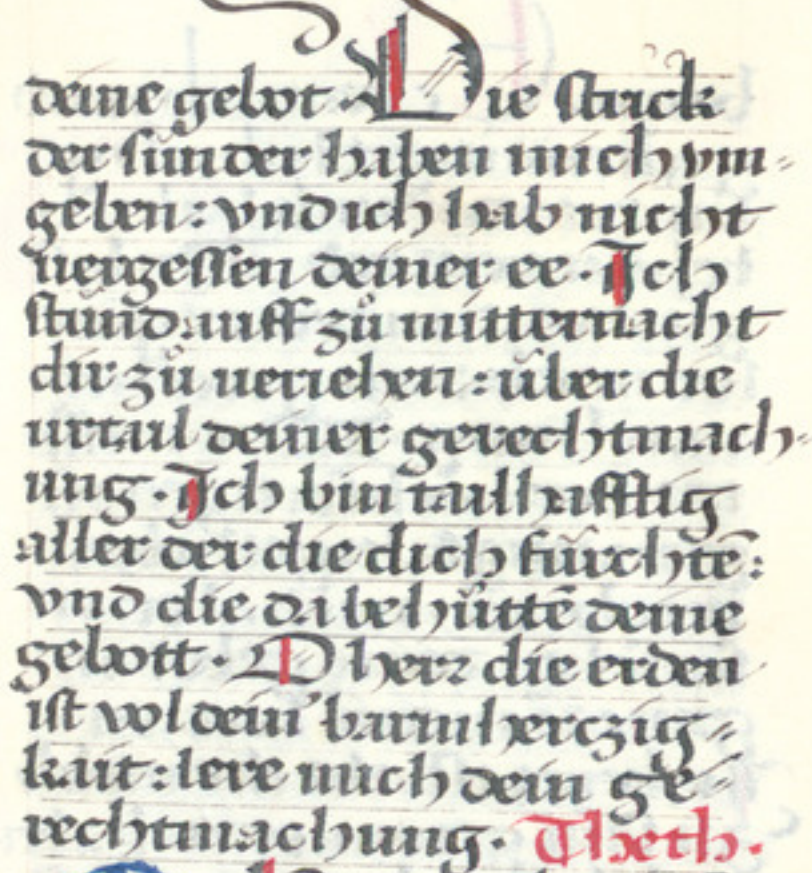 deine gebot · Die strick
der sünder haben mich vm⸗
geben : vnd ich hab nicht
uergessen deiner ee · Ich
stůnd auff zů mitternacht
dir zů ueriehen : über die
urtail deiner gerechtmach⸗
ung · Ich bin tailhafftig
aller der die dich fürchtē :
vnd die da behüttē deine
gebott · O herr die erden
ist vol dein’ barmherczig⸗
kait : lere mich dein ge⸗
rechtmachung · Theth ·